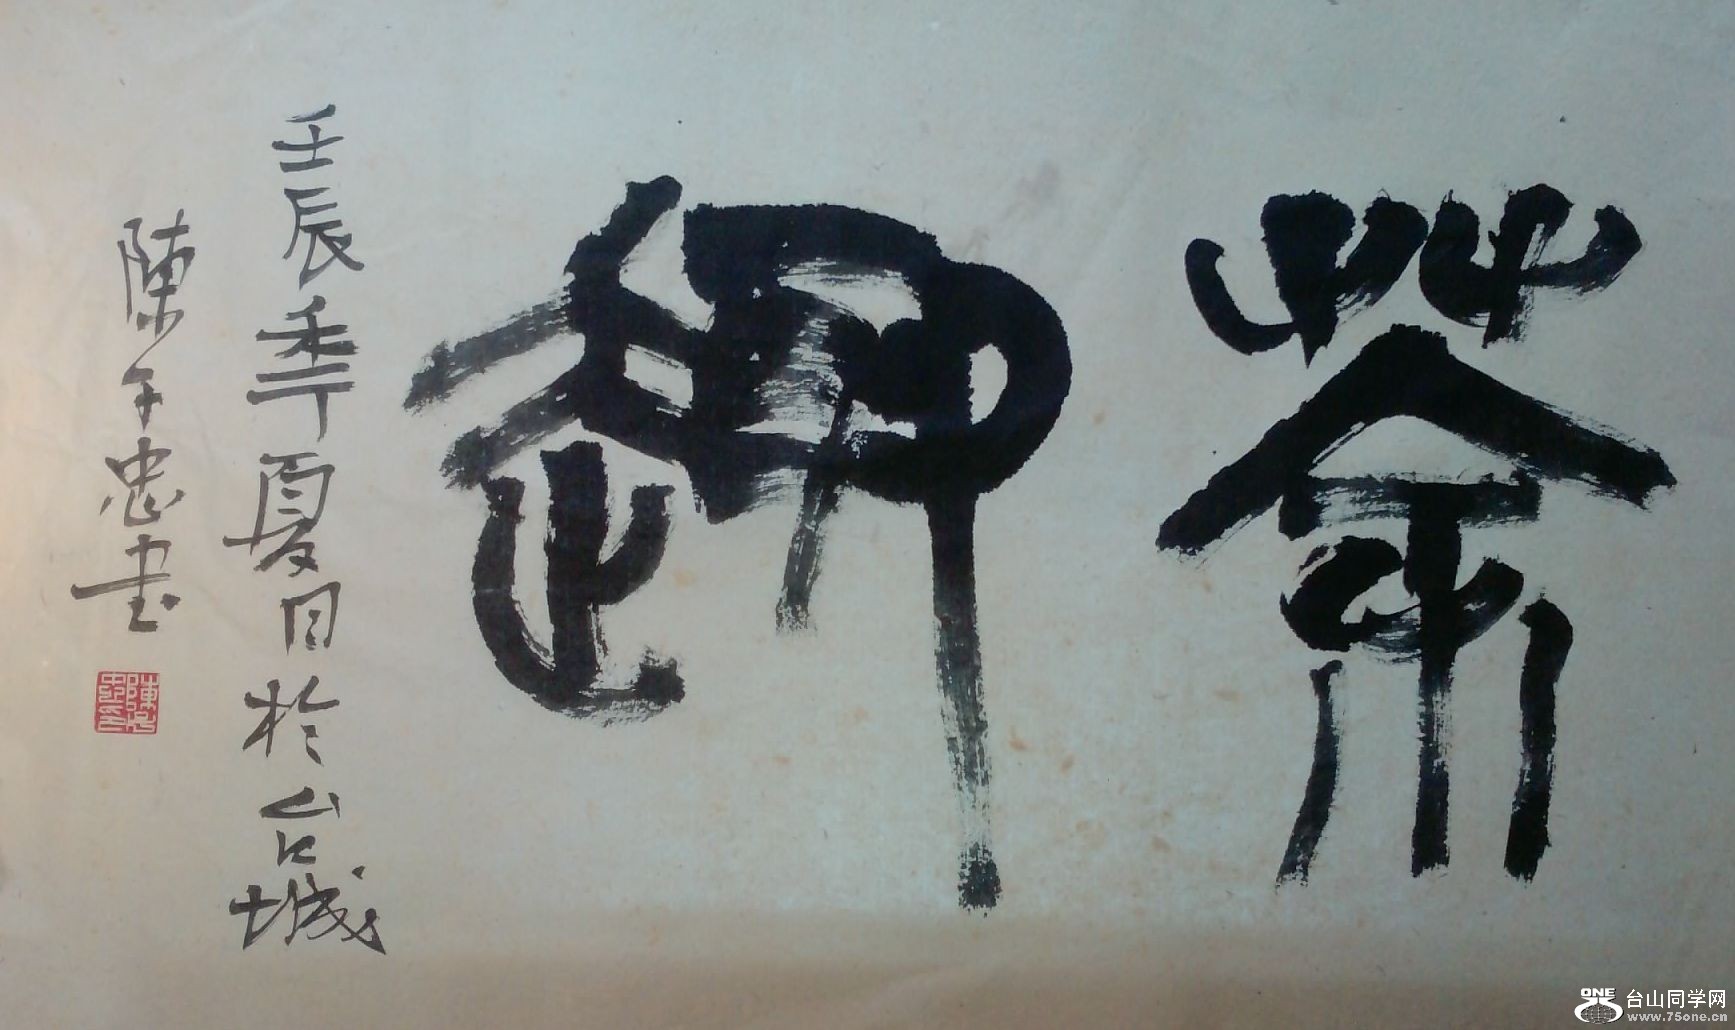 茶趣
壬辰季夏日於台城
陳子忠書
ONE
台山同学网
www.75one.cn